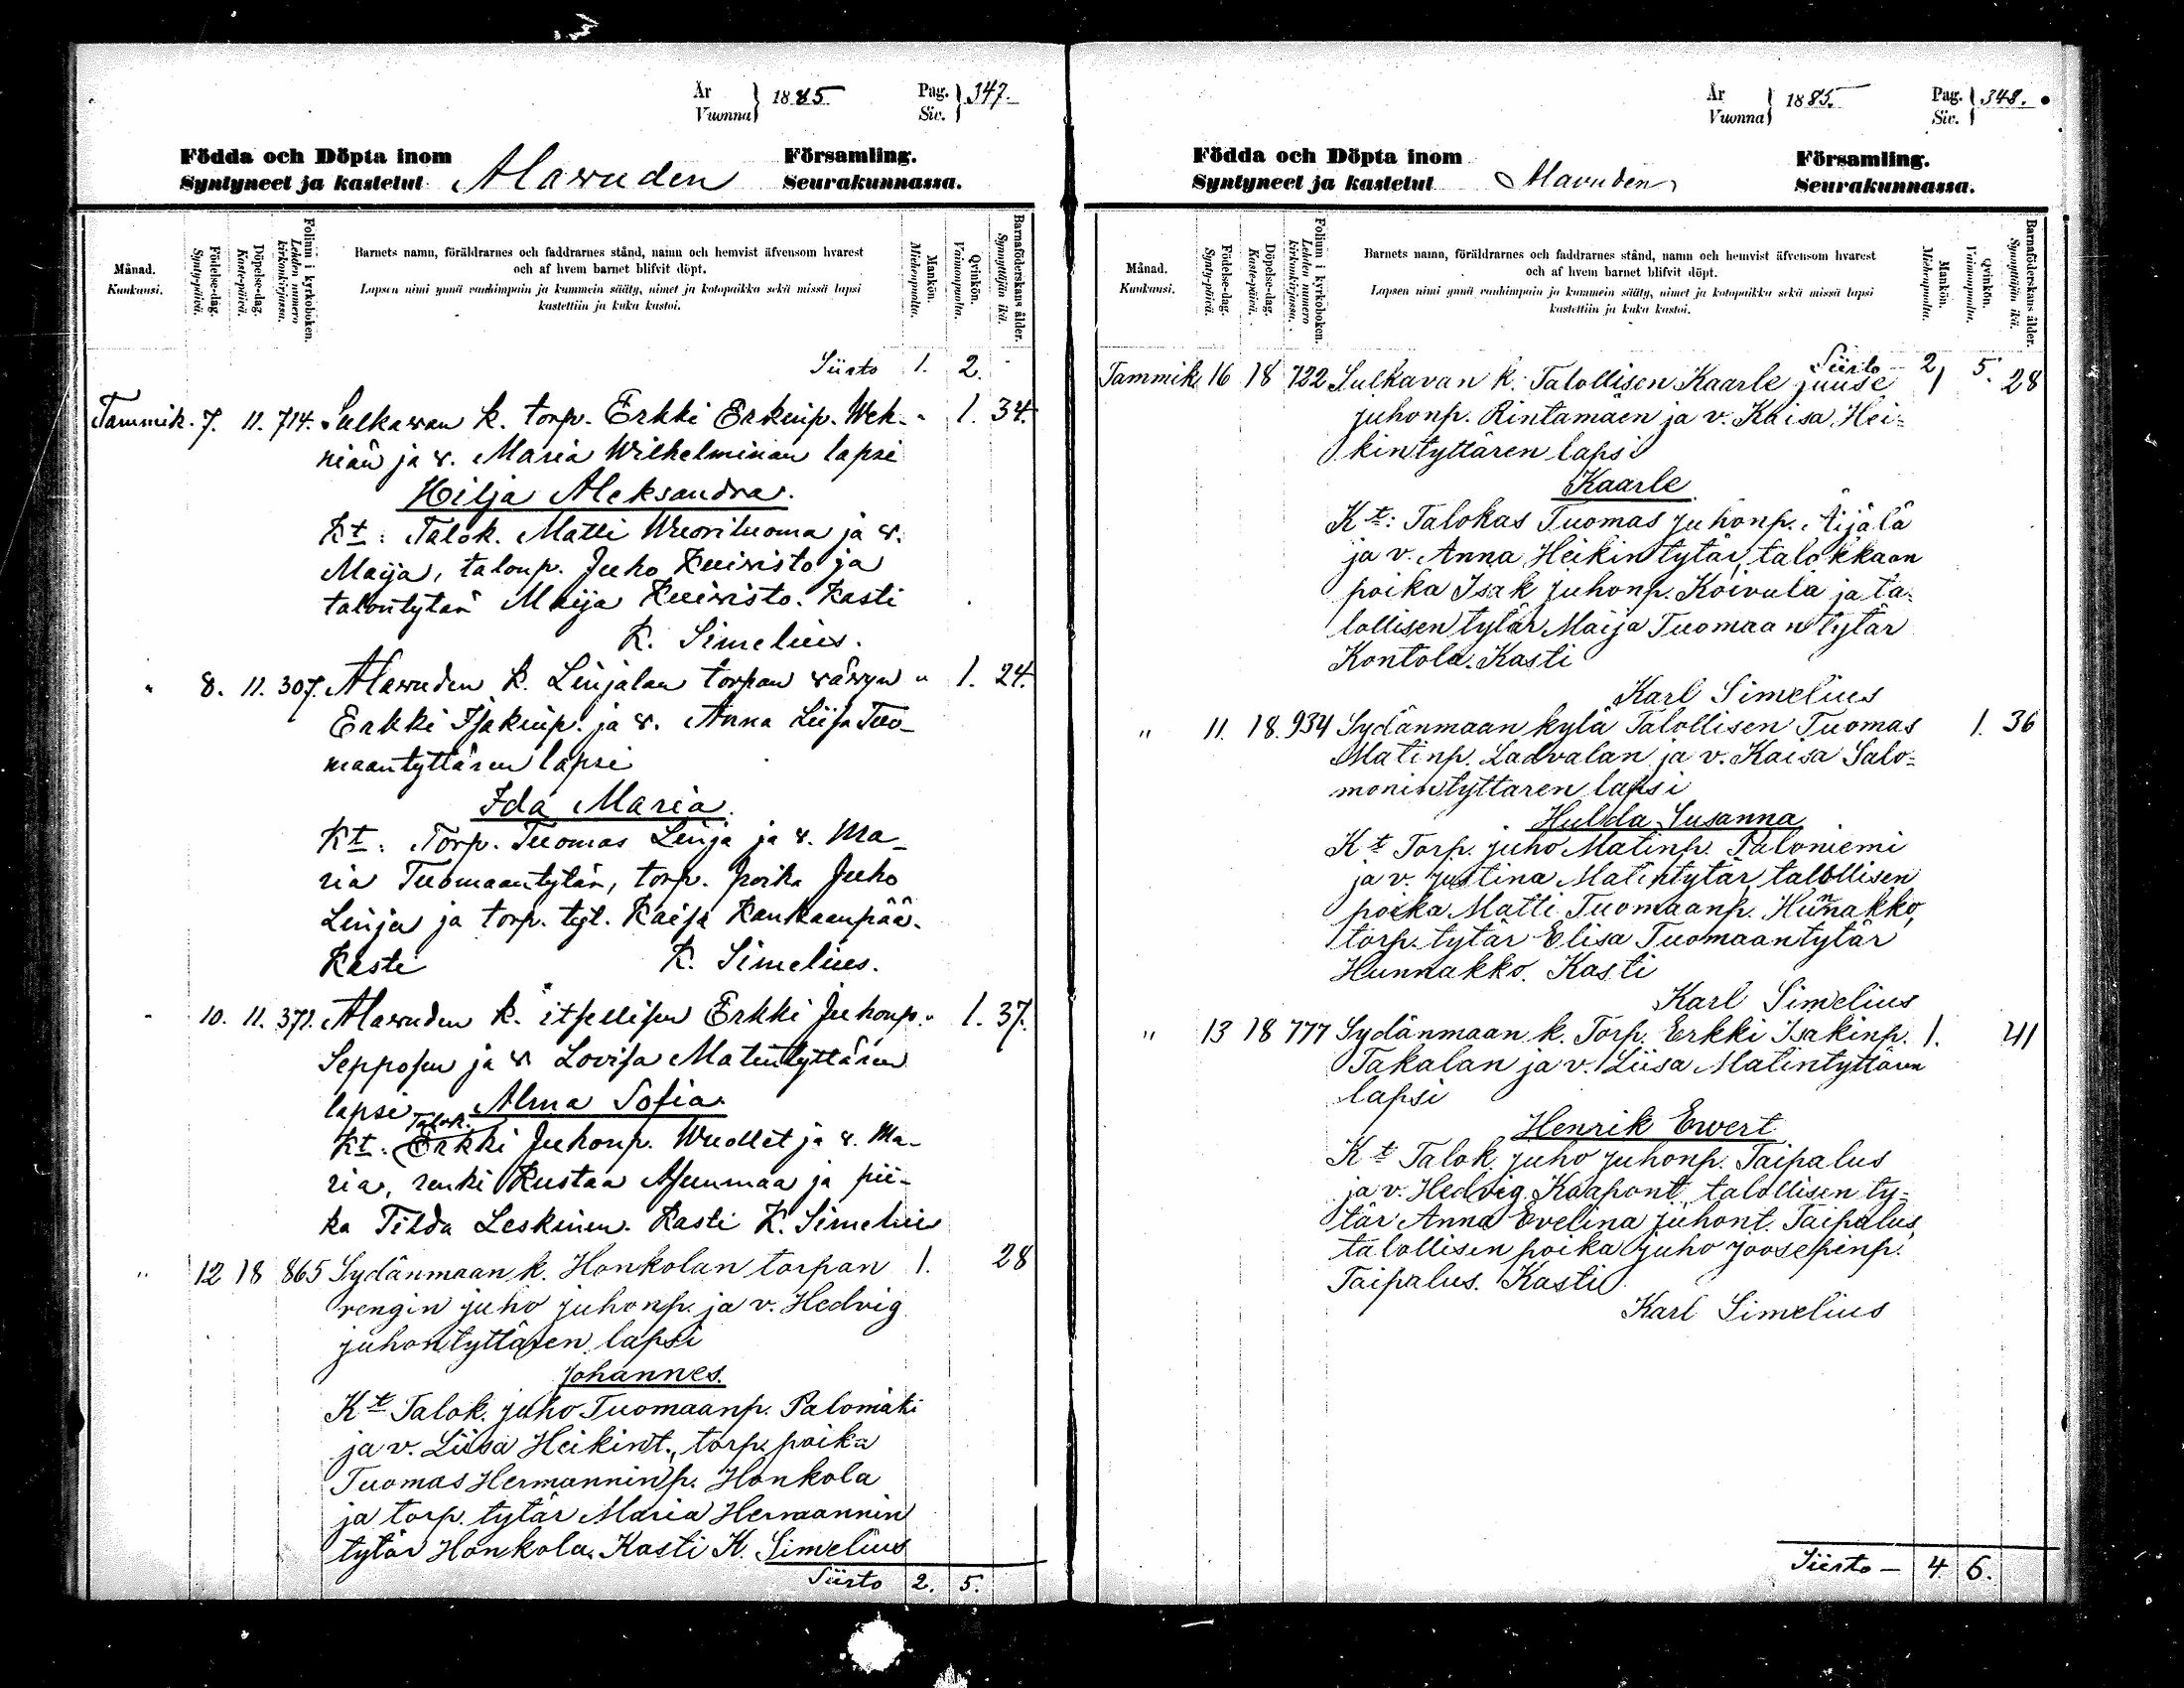 År Vuonna } 1885 Pag. Siv. } 347.
Födda och Döpta inom Församling.
Syntyneet ja kastetut Alawuden Seurakunnassa.
Månad. Kuukausi.
Födelse-dag. Syntypäivä.
Döpelse-dag. Kastepäivä.
Folium i kyrkoboken. Lehden numero kirkonkirjassa.
Barnets namn, föräldrarnes och faddrarnes stånd, namn och hemvist äfvensom hvarest
och af hvem barnet blifvit döpt.
Lapsen nimi ynnä vanhimpain ja kummein sääty, nimet ja kotopaikka sekä missä lapsi
kastettiin ja kuka kastoi.
Mankön. Miehenpuolia.
Qvinkön. Vaimonpuolia.
Barnaföderskans ålder. Synnyttäjän ikä.
Siirto 1. 2.
Tammik. 7. 11. 714. Sulkawan k. torp. Erkki Erkinp. Wek- " 1. 34.
niän ja w. Maria Wilhelminan lapsi
Hilja Aleksandra.
Kt: Talok. Matti Wuorituoma ja w.
Maija, talonp. Juho Kuiwisto ja
talontytär Maija Kuiwisto. Kasti
K. Simelius.
" 8. 11. 307. Alawuden k. Linjalan torpan wäwyn " 1. 24.
Erkki Isakinp. ja w. Anna Liisa Tuo-
maantyttären lapsi
Ida Maria.
Kt: Torp. Tuomas Linja ja w. Ma-
ria Tuomaantytär, torp. poika Juho
Linja ja torp. tyt. Kaisa Kankaanpää.
Kasti K. Simelius.
" 10. 11. 371. Alawuden k. itsellisen Erkki Juhonp. " 1. 37.
Repposen ja w Lovisa Matintyttären
lapsi Alma Sofia.
Talok.
Kt. Erkki Juhonp. Wuollet ja w. Ma-
ria, renki Kustaa Asunmaa ja pii-
ka Tilda Leskinen. Kasti K. Simelius
" 12 18 865 Sydänmaan k. Honkolan torpan 1. 28
rengin Juho Juhonp. ja v. Hedvig
Juhontyttären lapsi
Johannes.
Kt Talok. Juho Tuomaanp. Palomäki
ja v. Liisa Heikint., torp. poika
Tuomas Hermanninp. Honkola
ja torp. tytär Maria Hermannin
tytär Honkola. Kasti K. Simelius
Siirto 2. 5.
År Vuonna } 1885. Pag. Siv. } 348.
Födda och Döpta inom Församling.
Syntyneet ja kastetut Alavuden Seurakunnassa.
Månad. Kuukausi.
Födelse-dag. Syntypäivä.
Döpelse-dag. Kastepäivä.
Folium i kyrkoboken. Lehden numero kirkonkirjassa.
Barnets namn, föräldrarnes och faddrarnes stånd, namn och hemvist äfvensom hvarest
och af hvem barnet blifvit döpt.
Lapsen nimi ynnä vanhimpain ja kummein sääty, nimet ja kotopaikka sekä missä lapsi
kastettiin ja kuka kastoi.
Mankön. Miehenpuolia.
Qvinkön. Vaimonpuolia.
Barnaföderskans ålder. Synnyttäjän ikä.
Siirto 2 5.
Tammik. 16 18 722 Sulkavan k. Talollisen Kaarle Juuse 1 28
Juhonp. Rintamäen ja v. Kaisa Hei=
kintyttären lapsi
Kaarle
Kt: Talokas Tuomas Juhonp. Äijälä
ja v. Anna Heikintytär, talokkaan
poika Isak Juhonp. Koivula ja ta=
lollisen tytär Maija Tuomaantytär
Kontola. Kasti
Karl Simelius
" 11. 18. 934 Sydänmaan kylä Talollisen Tuomas 1. 36
Matinp. Ladvalan ja v. Kaisa Salo=
monintyttären lapsi
Hulda Susanna
Kt Torp. Juho Matinp. Taloniemi
ja v. Justina Matintytär, talollisen
poika Matti Tuomaanp. Hunnakko,
torp. tytär Elisa Tuomaantytär
Hunnakko. Kasti
Karl Simelius
" 13 18 777 Sydänmaan k. Torp. Erkki Isakinp. 1. 41
Takalan ja v. Liisa Matintyttären
lapsi
Henrik Ewert
Kt Talok. Juho Juhonp. Taipalus
ja v. Hedvig Kaapont. talollisen ty=
tär Anna Evelina Juhont. Taipalus,
talollisen poika Juho Joosepinp.
Taipalus. Kasti
Karl Simelius
Siirto — 4 6.